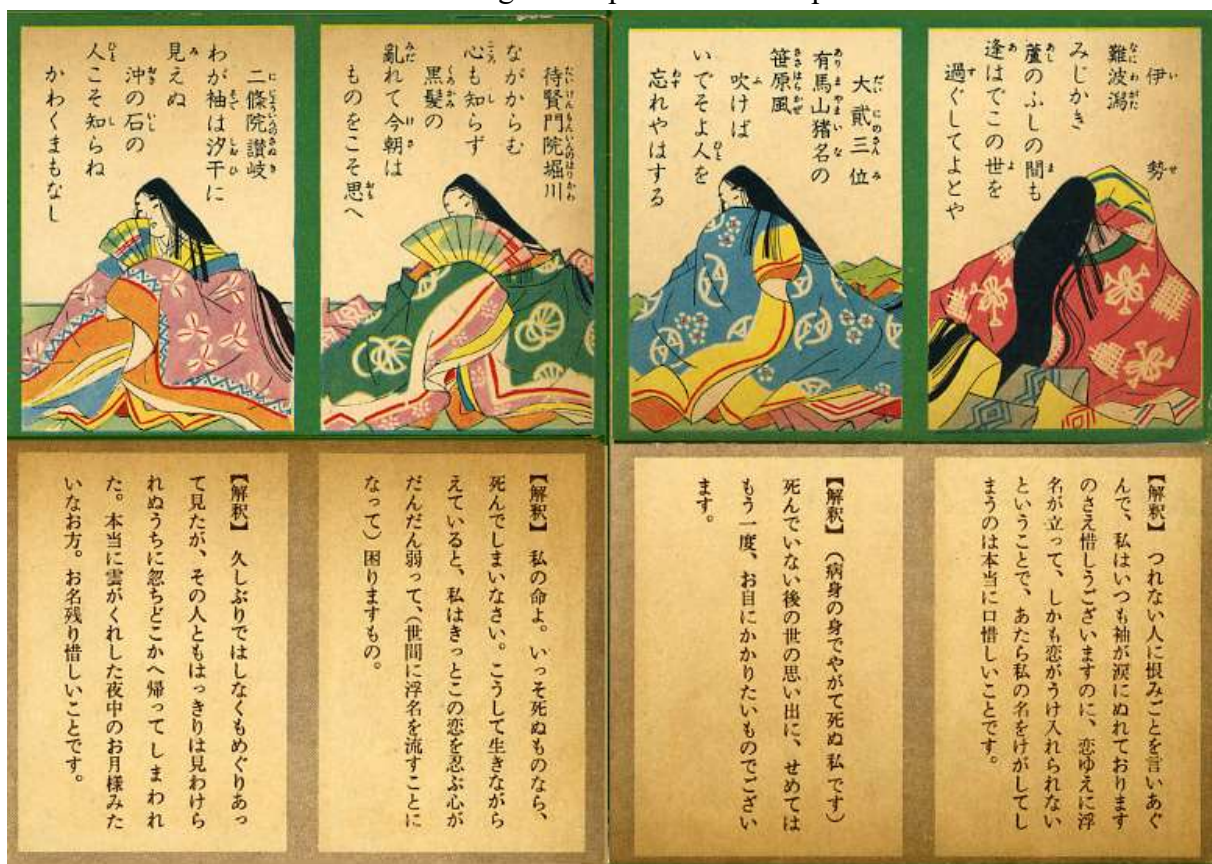 伊勢
難波潟
みじかき
蘆のふしの間も
逢はでこの世を
過ぐしてよとや
大貳三位
有馬山猪名の
笹原風
吹けば
いでそよ人を
忘れやはする
待賢門院堀川
ながからむ
心も知らず
黒髪の
亂れて今朝は
ものをこそ思へ
二條院讃岐
わが袖は汐干に
見えぬ
沖の石の
人こそ知らね
かわくまもなし
【解釈】 つれない人に恨みごとを言いあぐ
んで、私はいつも袖が涙にぬれております
のさえ惜しうございますのに、恋ゆえに浮
名が立って、しかも恋がうけ入れられない
ということで、あたら私の名をけがしてし
まうのは本当に口惜しいことです。
【解釈】 (病身の身でやがて死ぬ私です)
死んでいない後の世の思い出に、せめては
もう一度、お目にかかりたいものでござい
ます。
【解釈】 私の命よ。いっそ死ぬものなら、
死んでしまいなさい。こうして生きながら
えていると、私はきっとこの恋を忍ぶ心が
だんだん弱って、(世間に浮名を流すことに
なって)困りますもの。
【解釈】 久しぶりではしなくもめぐりあっ
て見たが、その人ともはっきりは見わけら
れぬうちに忽ちどこかへ帰ってしまわれ
た。本当に雲がくれした夜中のお月様みた
いなお方。お名残り惜しいことです。